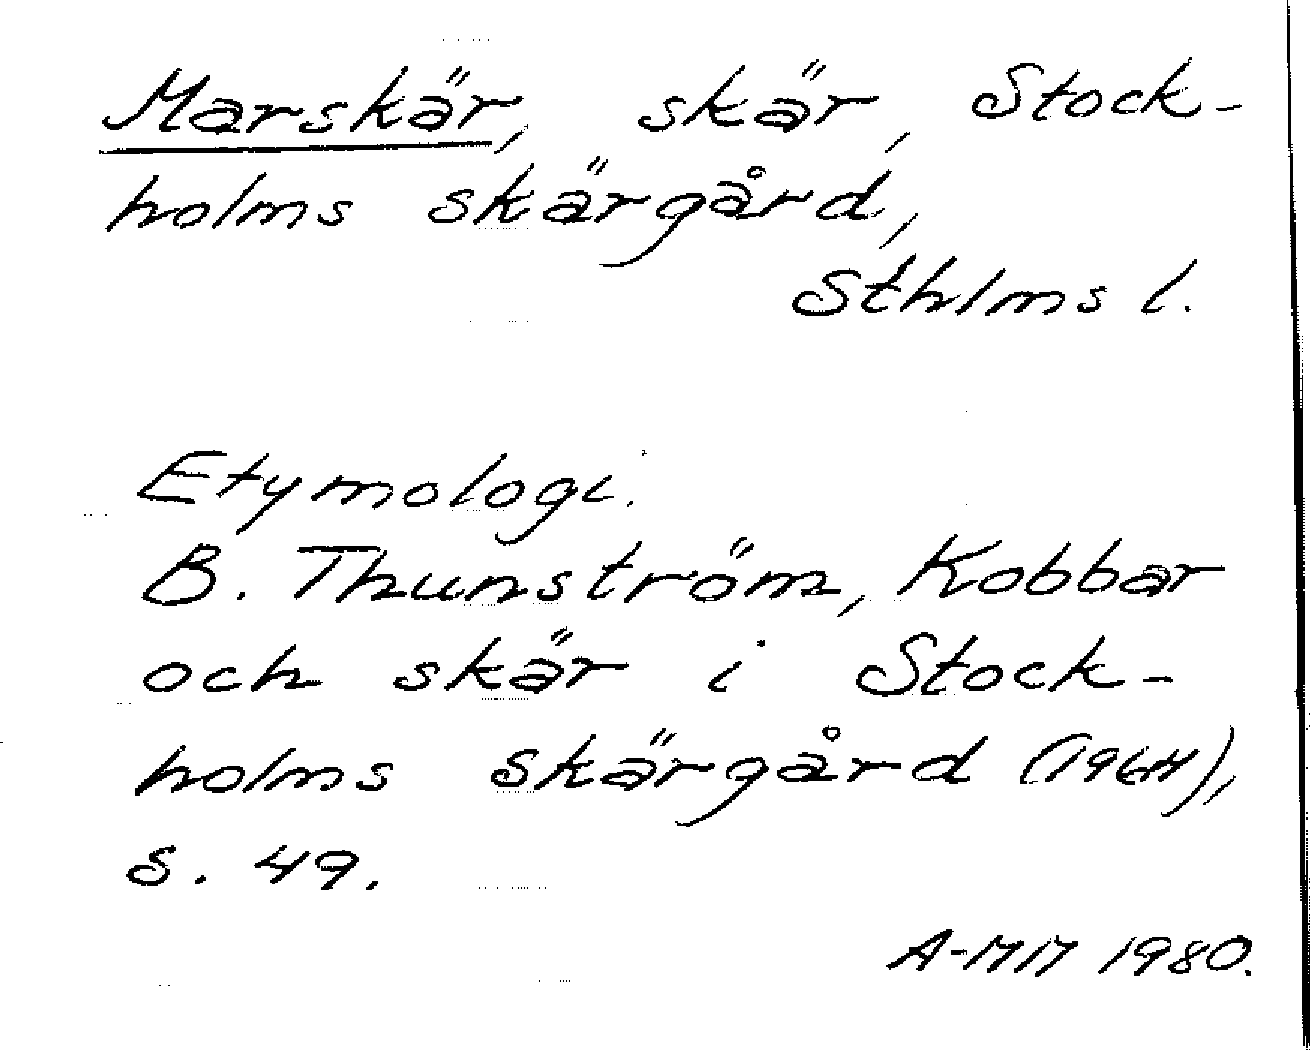 Marskär, skär, Stock-
holms skärgård,
Sthlms l.
Etymologi.
B. Thunström, Kobbar
och skär i Stock-
holms skärgård (1964),
s. 49.
A-MM 1980.